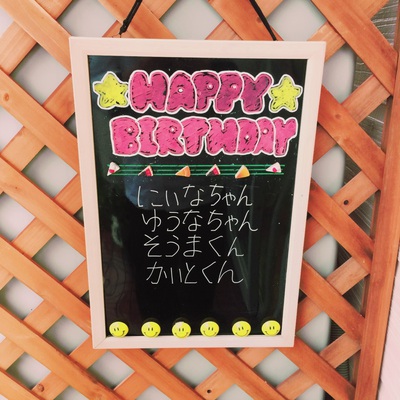 HAPPY
BIRTHDAY
にいなちゃん
ゆうなちゃん
そうまくん
かいとくん